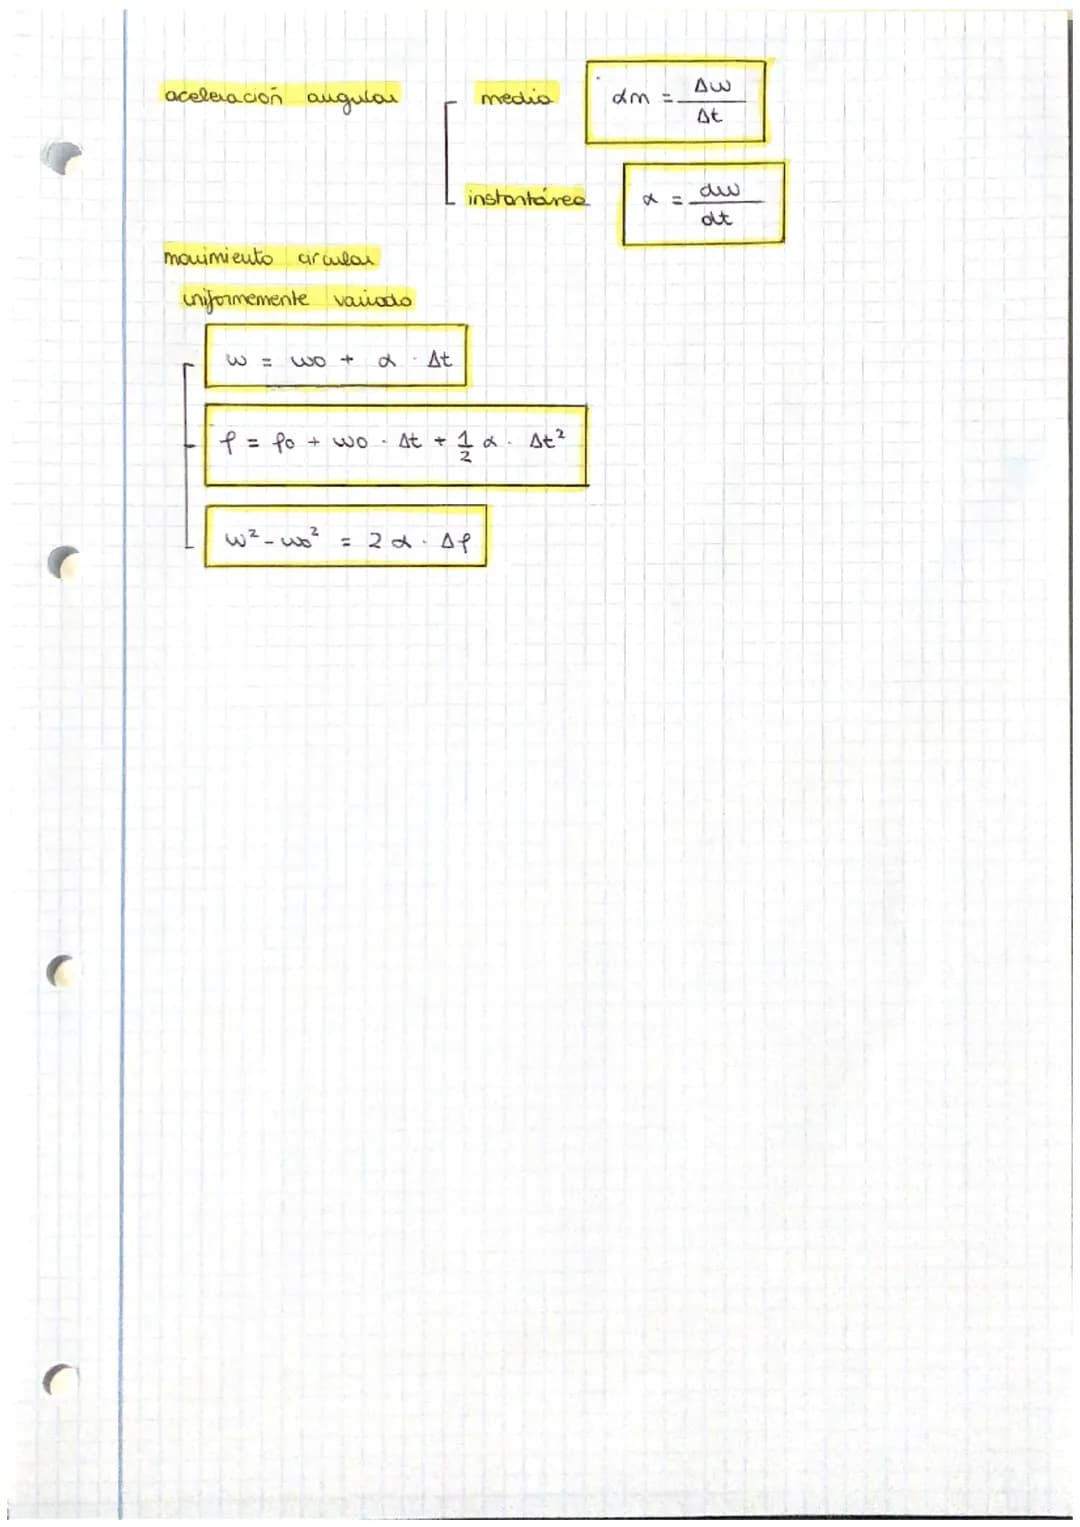 aceleración angular
media αm = Δω/Δt
instantánea α = dω/dt
movimiento circular
uniformemente variado
ω = ω0 + α · Δt
φ = φ0 + ω0 · Δt + 1/2 α · Δt²
ω² - ω0² = 2 α · Δφ